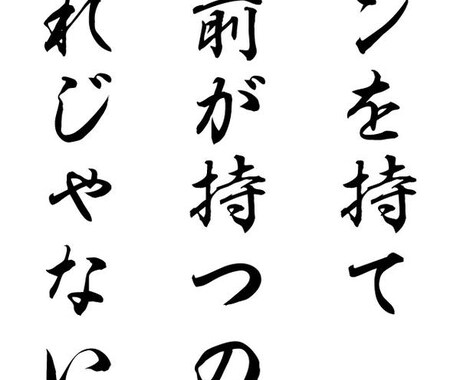 ンを持て
前が持つの
れじゃない